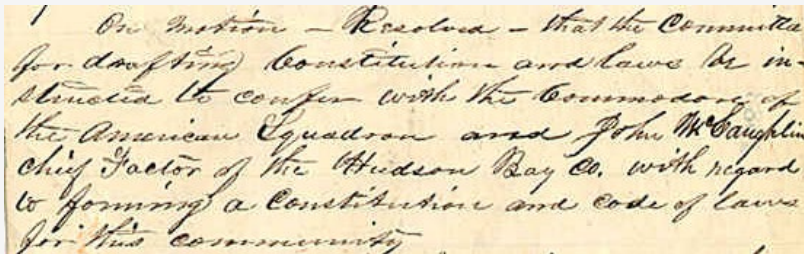 On motion - Resolved - that the Committee
for drafting Constitution and laws be in-
structed to confer with the Commodore of
the American Squadron and John McLaughlin
chief Factor of the Hudson Bay Co. with regard
to forming a Constitution and code of laws
for this community